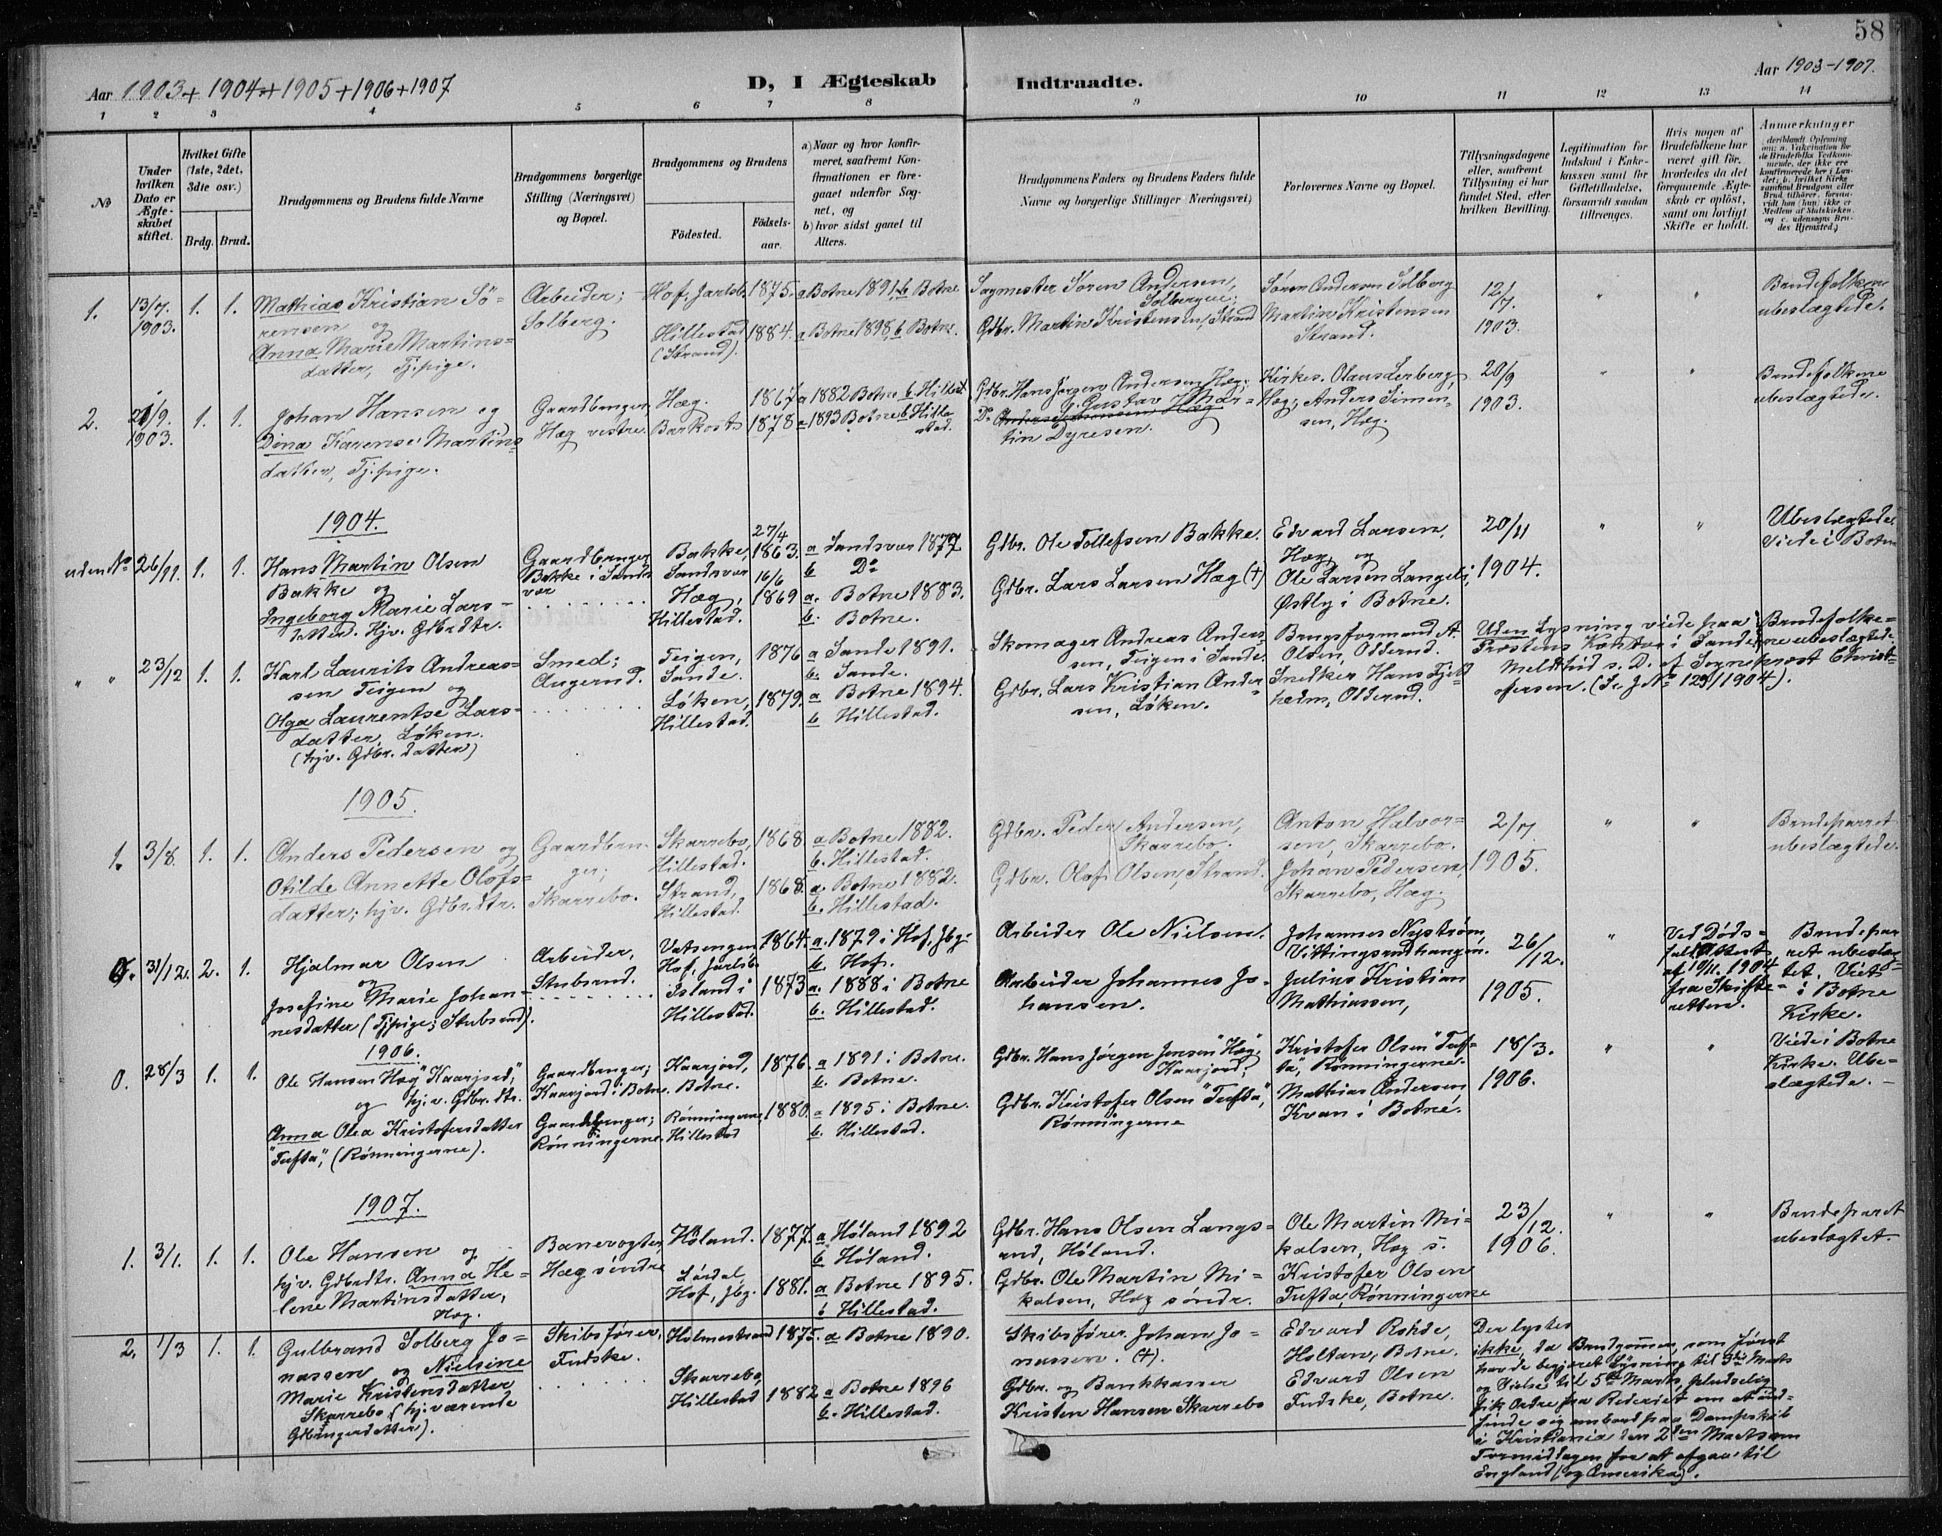 58
Aar 1903 + 1904 + 1905 + 1906 + 1907
D, I Ægteskab Indtraadte.
Aar 1903-1907.
1 2 3 4 5 6 7 8 9 10 11 12 13 14
No
Under hvilken Dato er Ægteskabet stiftet.
Hvilket Gifte (1ste, 2det, 3die osv.)
Brdg. Brud.
Brudgommens og Brudens fulde Navne
Brudgommens borgerlige Stilling (Næringsvei) og Bopæl.
Brudgommens og Brudens
Fødested.
Fødselsaar.
a) Naar og hvor konfirmeret, saafremt Konfirmationen er foregaaet udenfor Sognet, og
b) hvor sidst gaaet til Alters.
Brudgommens Faders og Brudens Faders fulde Navne og borgerlige Stillinger (Næringsvei)
Forlovernes Navne og Bopæl.
Tillysningsdagene eller, saafremt Tillysning ei har fundet Sted, efter hvilken Bevilling.
Legitimation for Indskud i Enkekassen samt for Giftetilladelse, forsaavidt saadan tiltrænges.
Hvis nogen af Brudefolkene har været gift før, hvorledes da det foregaaende Ægteskab er opløst, samt om lovligt Skifte er holdt.
Anmerkninger
1. 13/7 1903. 1. 1.
Mathias Kristian Sö-
rensen og
Anna Marie Martins-
datter, Tj.pige.
Arbeider;
Solberg.
Hof, Jarlsb.
Hillestad
(Strand).
1875.
1884.
a Botne 1891, b Botne
a Botne 1898, b Botne.
Sagmester Søren Andersen,
Solbergeie;
Gdbr. Martin Kristensen, Strand
Søren Andersen Solberg
Martin Kristensen
Strand.
12/7
1903.
" "
Brudefolkene
ubeslægtede.
2. 21/9 1903. 1. 1.
Johan Hansen og
Dina Karense Martins-
datter, Tj.pige.
Gaardbruger,
Hæg vestre.
Hæg.
Barkost
1867
1878
a 1882 Botne b Hillest.
a 1893 Botne b Hille-
stad.
Gdbr. Hans Jørgen Andersen Hæg;
Gustav Mar-
tin Dyresen.
Kirkes. Olaus Lerberg,
Hæg; Anders Simen-
sen, Hæg.
20/9
1903.
" "
Brudefolkene
ubeslægtede.
1904.
uden No 26/11. 1. 1.
Hans Martin Olsen
Bakke og
Ingeborg Marie Lars-
datter. Hjv. Gdbrdtr.
Gaardbruger
Bakke i Sands-
vær
Bakke,
Sandsvær
Hæg,
Hillestad.
27/4
1863.
16/6
1869
a Sandsvær 1877
b Do
a. Botne 1883.
b. Botne.
Gdbr. Ole Tollefsen Bakke.
Gdbr. Lars Larsen Hæg (†)
Edvard Larsen,
Hæg og
Ole Larsen Langeli,
Østby i Botne.
20/11
1904.
" "
Ubeslægtede
Viede i Botne
" " 23/12 1. 1.
Karl Laurits Andreas-
sen Teigen og
Olga Laurentse Lars-
datter, Løken.
(hjv. Gdbr. datter)
Smed;
Angerud.
Teigen,
Sande.
Løken,
Hillestad.
1876
1879.
a Sande 1891.
b. Sande.
a Botne 1894.
b Hillestad.
Skomager Andreas Anders-
sen, Teigen i Sande.
Gdbr. Lars Kristian Ander-
sen, Løken.
Brugsformand A.
Olsen, Odderud.
Snedker Hans Fjeld-
heim, Odderud.
Uden Lysning viede paa
Prostens Kontor i Sande
Melthid s. D. af Sogneprest Christ-
ofersen. (Se J.No 129/1904).
Brudefolke-
ne ubeslægtede.
1905.
1. 3/8. 1. 1.
Anders Pedersen og
Otilde Annette Olofs-
datter; hjv. Gdbr.dtr.
Gaardbru-
ger;
Skarrebo.
Skarrebo,
Hillestad.
Strand,
Hillestad.
1868
1868.
a Botne 1882.
b. Hillestad.
a. Botne 1882.
b. Hillestad.
Gdbr. Peder Andersen,
Skarrebo.
Gdbr. Olof Olsen, Strand.
Anton Halvor-
sen, Skarrebo.
Johan Pedersen,
Skarrebo, Hæg.
2/7
1905.
" "
Brudeparret
ubeslægtede.
0. 31/12. 2. 1.
Hjalmar Olsen
og
Josefine Marie Johan-
nesdatter (Tj.pige; Stubsrud).
Arbeider,
Stubsrud.
Vatsengen
Hof, Jarlsb.
Island i
Hillestad.
1864.
1873
a. 1879 i Hof, Jbg.
b. Hof.
a. 1888 i Botne
b. Hillestad.
Arbeider Ole Nielsen.
Arbeider Johannes Jo-
hansen.
Johannes Nystrøm,
Vittingsrudhangen.
Julius Kristian
Mathiassen,
26/12.
1905.
"
Ved Døds-
fald. Attest
af 19/11. 1904
fra Skifte-
retten.
Brudepar-
ret ubeslæg-
tet. Viet
i Botne
Kirke.
1906.
0. 28/3 1. 1.
Ole Hansen Hæg "Kaarjord",
og hjv. Gdbr.dtr.
Anna Olea Kristofersdatter
"Tufta", (Rønningerne).
Gaardbruger;
Kaarjord i Botne.
Gaardbruger;
Rønningerne.
Kaarjord,
Botne.
Rønningerne,
Hillestad
1876.
1880.
a 1891 i Botne.
b. Botne.
a 1895 i Botne.
b. Hillestad.
Gdbr. Hans Jørgen Jensen "Hæg",
Kaarjord,
Gdbr. Kristofer Olsen "Tufta",
Rønningerne
Kristofer Olsen "Tuf-
ta", Rønningerne.
Mathias Andersen,
Kvan i Botne.
18/3.
1906.
" "
Viede i Botne
Kirke. Ube-
slægtede.
1907.
1. 3/1. 1. 1.
Ole Hansen og
hjv. Gdbrdtr. Anna He-
lene Martinsdatter,
Hæg.
Banevogter,
Hæg søndre
Høland.
Lørdal,
Hof, Jbg.
1877.
1881.
a Høland 1892
b Høland.
a Botne 1895.
b Hillestad.
Gdbr. Hans Olsen Langs-
rud, Høland.
Gdbr. Ole Martin Mi-
kalsen, Hæg søndr.
Ole Martin Mi-
kalsen, Hæg s.
Kristofer Olsen
Tufta, Rønningerne
23/12.
1906.
" "
Brudeparet
ubeslægtet.
2. 1/3 1. 1.
Gulbrand Solberg Jo-
nassen og Nielsine
Marie Kristensdatter
Skarrebo (hjværende
Gdbrugerdatter).
Skibsfører,
Fudske.
Holmestrand
Skarrebo,
Hillestad
1875.
1882
a Botne 1890.
a Botne 1896
b. Hillestad.
Skibsfører Johan Jo-
nassen. (†).
Gdbr. og Bankkasser
Kristen Hansen Skarrebo
Edvard Rohde,
Holtan, Botne.
Edvard Olsen
Fudske, Botne.
Der lystes
ikke, da Brudgommen, som først
havde begjæret Lysning til 3die Marts
og Vielse til 5te Marts, pludselig
fik Ordre fra Rederiet om at ind-
finde sig ombord paa Dampskib
i Kristiania den 2den Marts om
Formiddagen for at afgaa til
England (og Amerika).